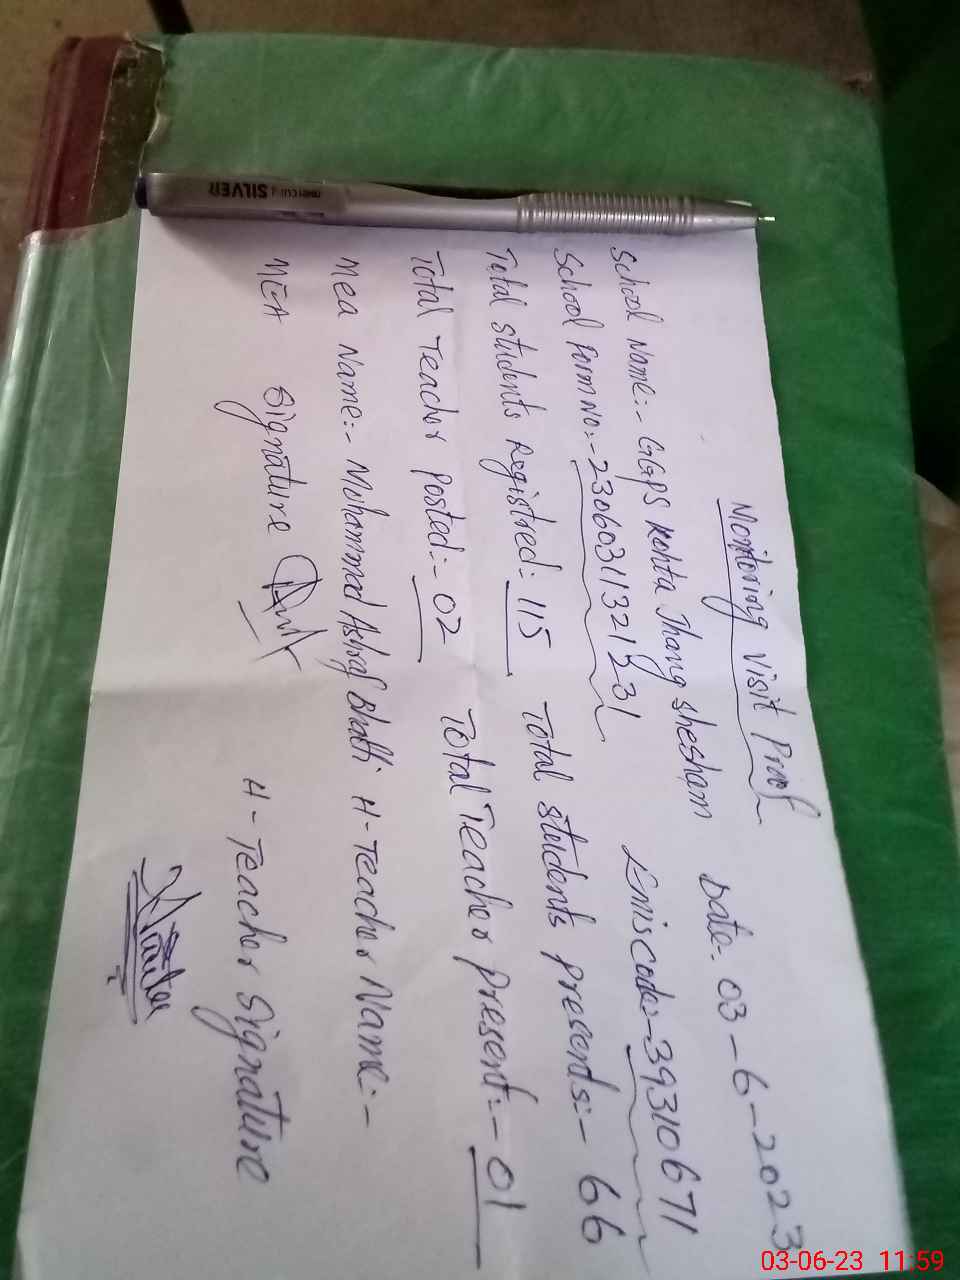 Monitoring Visit Proof
Date:- 03-6-2023
School Name:- GGPS Kohta Jhang shesham
School form No:- 23060311321231 Emiscode:- 39310671
Total students Registred:- 115 Total students presents:- 66
Total Teacher Posted:- 02 Total Teacher present:- 01
Mea Name:- Mohammad Ashraf Bhatti H-Teacher Name:-
MEA Signature H-Teacher Signature
SILVER
03-06-23 11:59